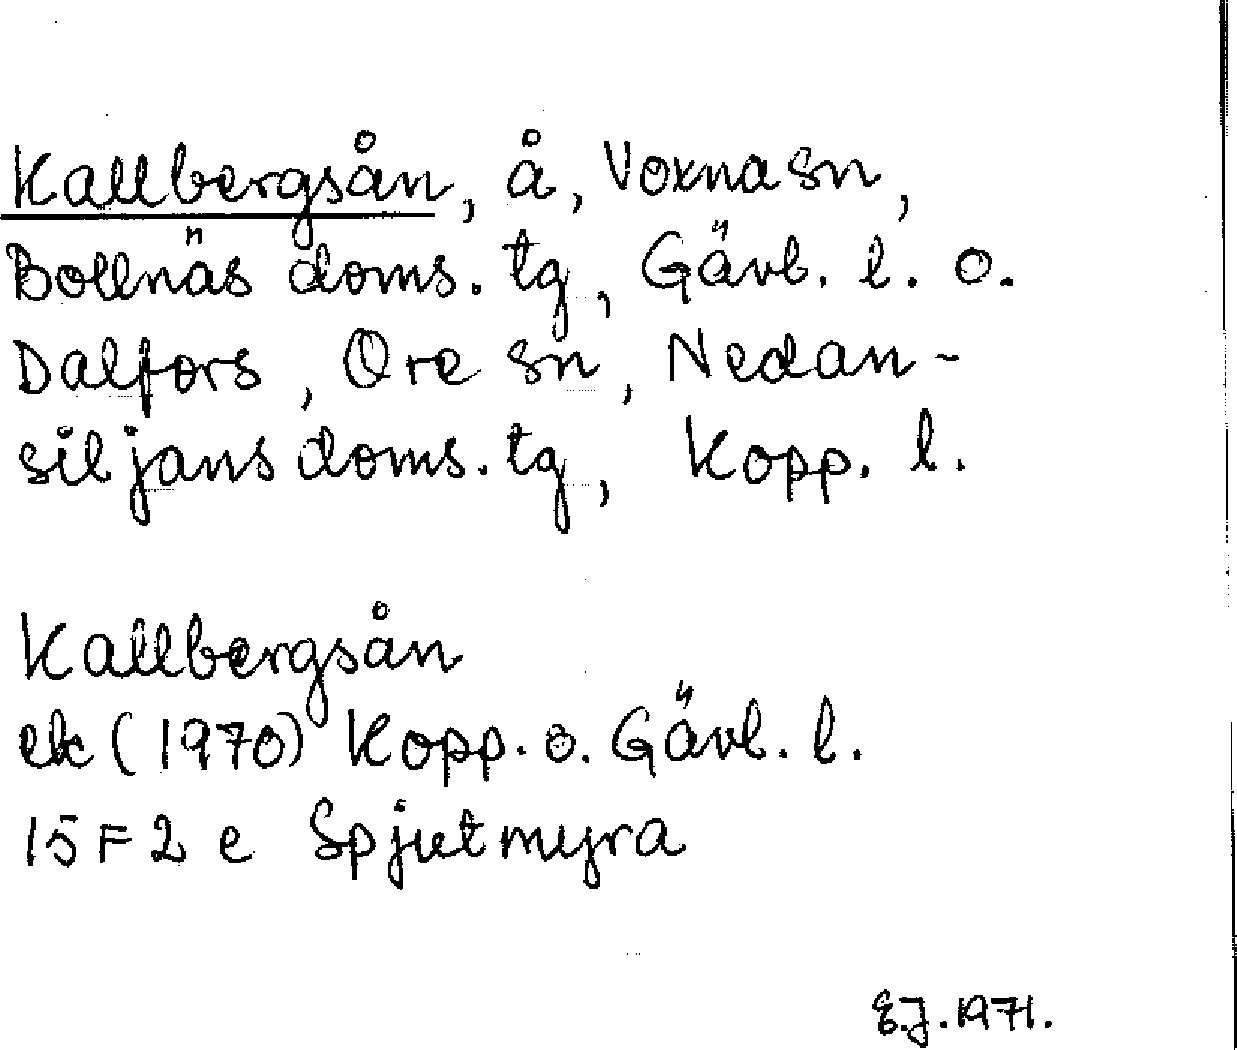 Kallbergsån, å, Voxna sn,
Bollnäs doms. tg, Gävl. l. o.
Dalfors, Ore sn, Nedan-
siljans doms. tg, Kopp. l.
Kallbergsån
ek (1970) Kopp. o. Gävl. l.
15 F 2 e Spjutmyra
E.J. 1971.